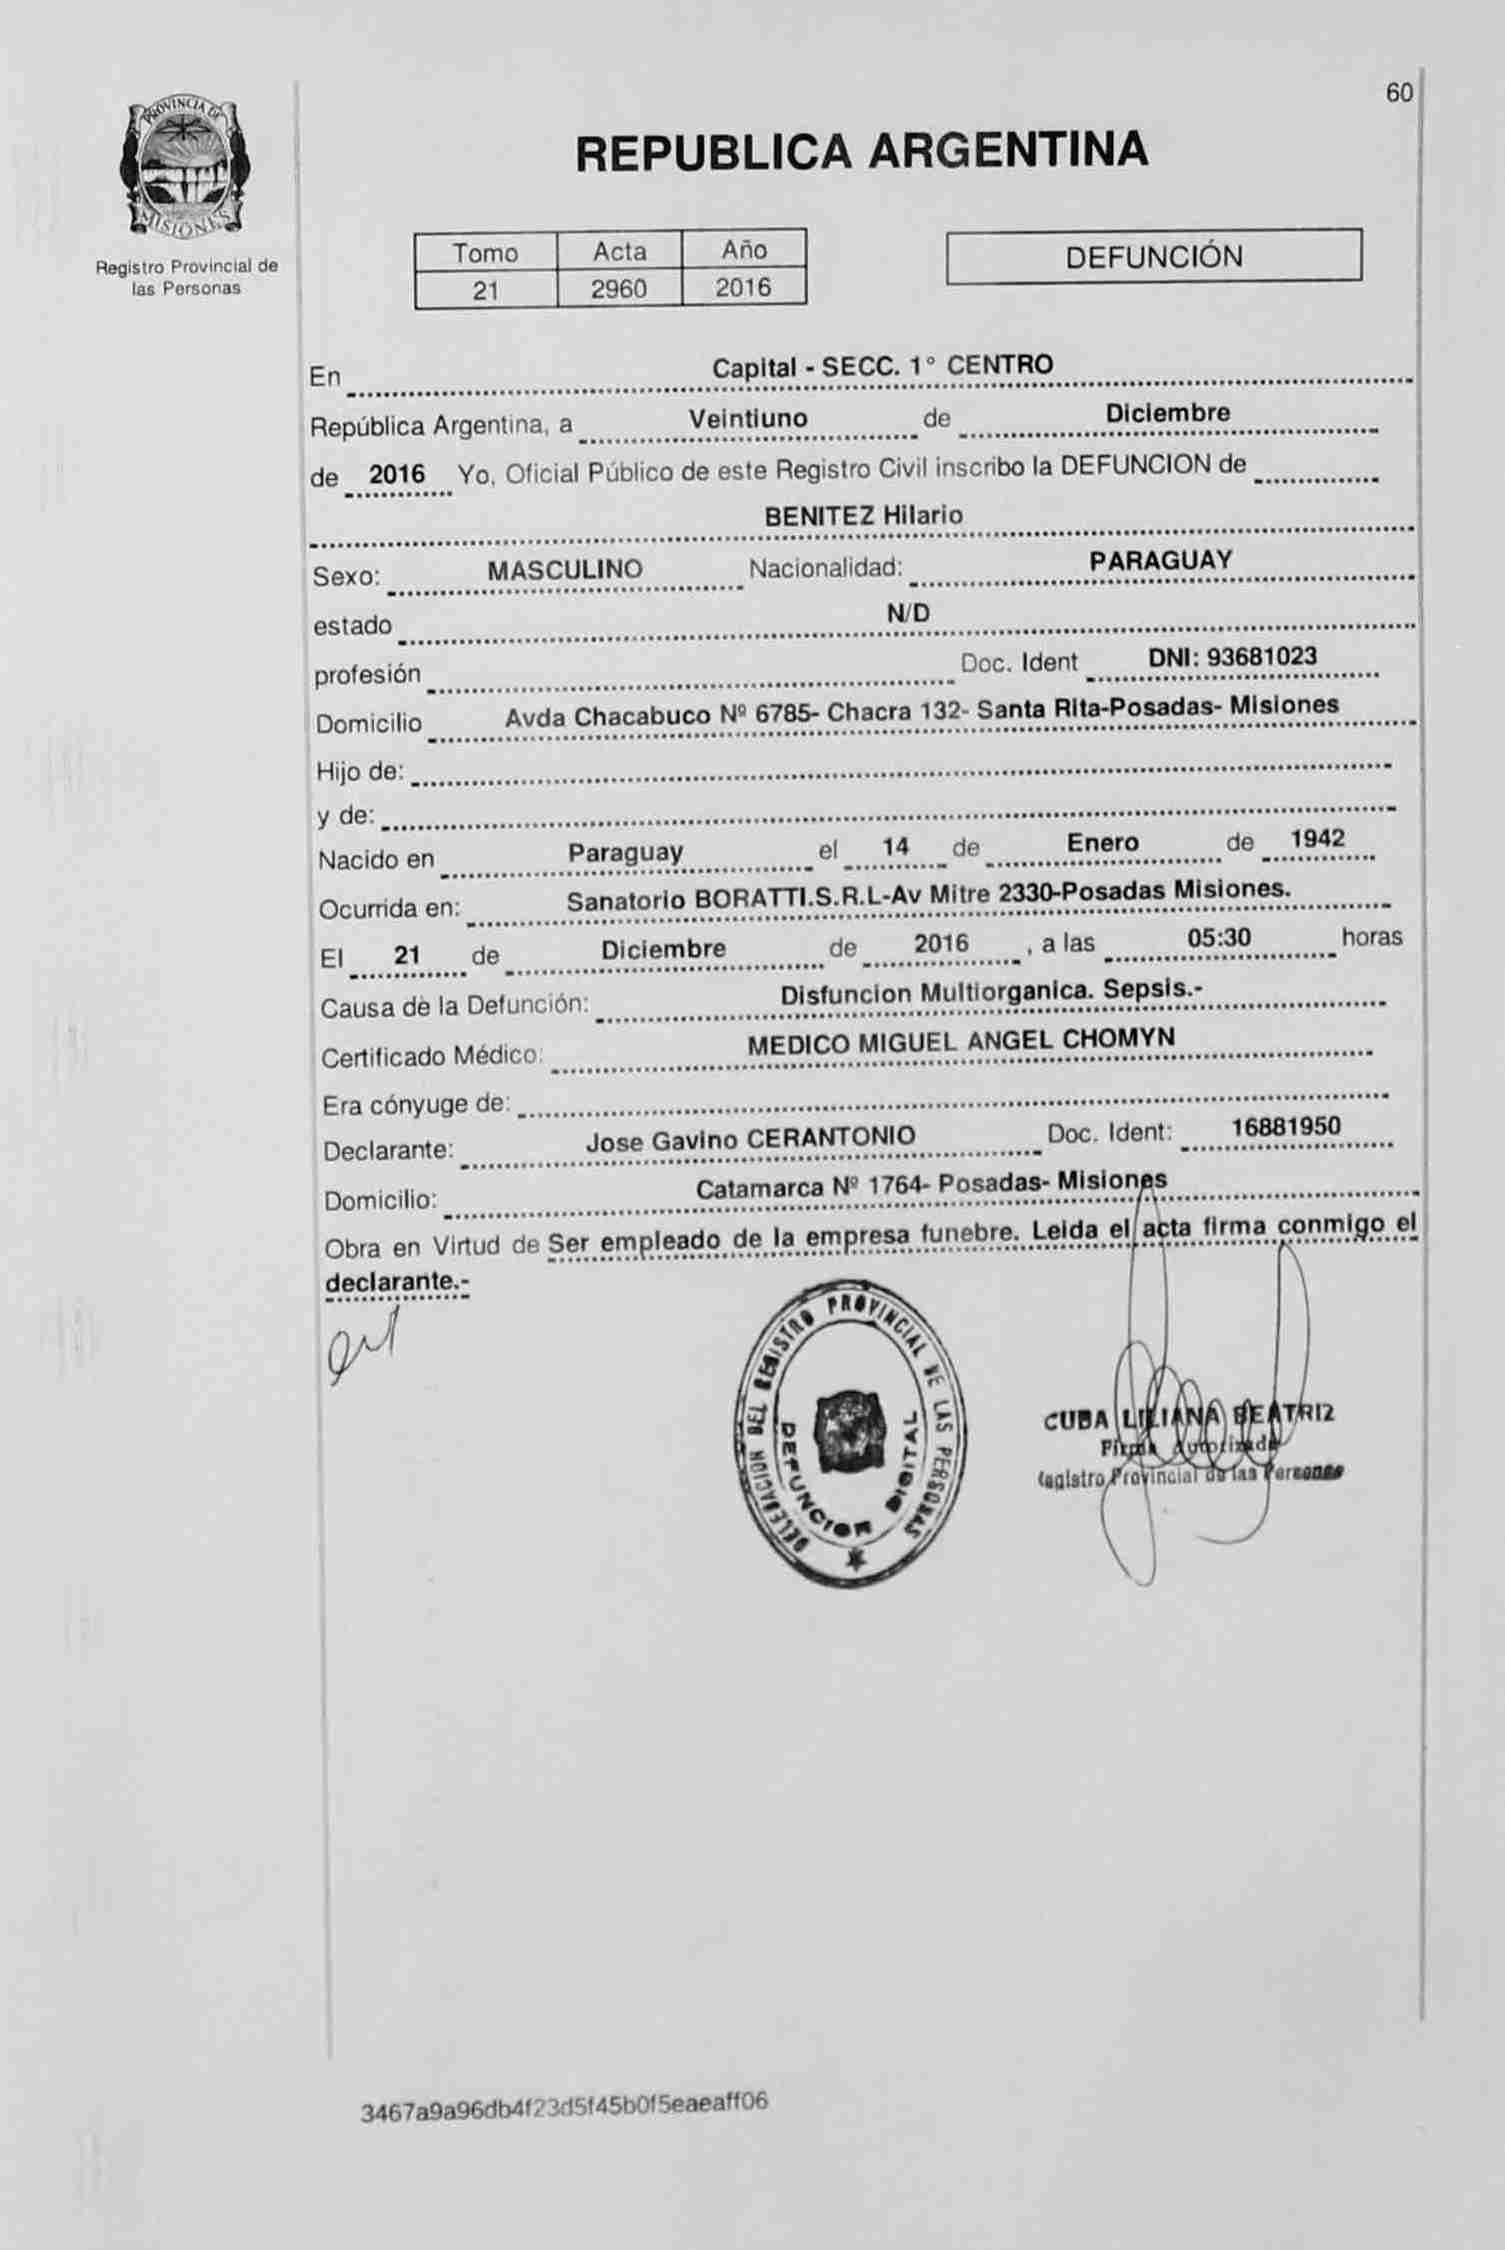 60
PROVINCIA DE
MISIONES
Registro Provincial de
las Personas
REPUBLICA ARGENTINA
Tomo Acta Año
21 2960 2016
DEFUNCIÓN
En Capital - SECC. 1° CENTRO
República Argentina, a Veintiuno de Diciembre
de 2016 Yo, Oficial Público de este Registro Civil inscribo la DEFUNCION de
BENITEZ Hilario
Sexo: MASCULINO Nacionalidad: PARAGUAY
estado N/D
profesión Doc. Ident DNI: 93681023
Domicilio Avda Chacabuco Nº 6785- Chacra 132- Santa Rita-Posadas- Misiones
Hijo de:
y de:
Nacido en Paraguay el 14 de Enero de 1942
Ocurrida en: Sanatorio BORATTI.S.R.L-Av Mitre 2330-Posadas Misiones.
El 21 de Diciembre de 2016 , a las 05:30 horas
Causa de la Defunción: Disfuncion Multiorganica. Sepsis.-
Certificado Médico: MEDICO MIGUEL ANGEL CHOMYN
Era cónyuge de:
Declarante: Jose Gavino CERANTONIO Doc. Ident: 16881950
Domicilio: Catamarca Nº 1764- Posadas- Misiones
Obra en Virtud de Ser empleado de la empresa funebre. Leida el acta firma conmigo el
declarante.-
DELEGACION DEL REGISTRO PROVINCIAL DE LAS PERSONAS
DEFUNCION DIGITAL
CUBA LILIANA BEATRIZ
Firma Autorizada
Registro Provincial de las Personas
3467a9a96db4f23d5f45b0f5eaeaff06